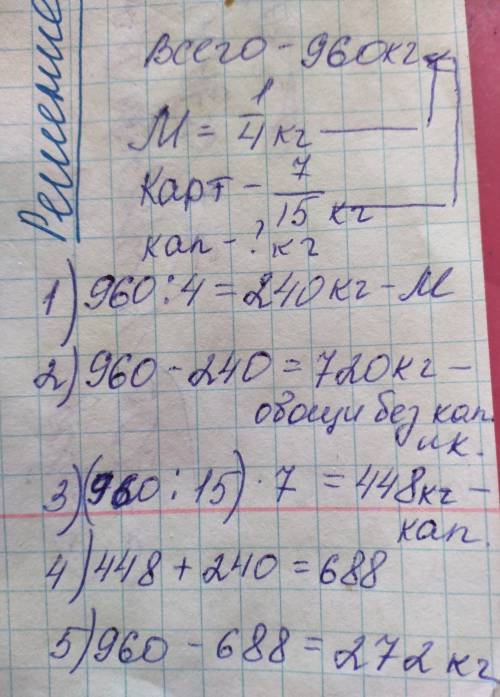 Решение
Всего - 960кг
М = 1/4 кг
Карт - 7/15 кг
кап - ? кг
1) 960 : 4 = 240кг - М
2) 960 - 240 = 720кг -
овощи без кап.
и к.
3) (960 : 15) · 7 = 448кг -
кап.
4) 448 + 240 = 688
5) 960 - 688 = 272 кг